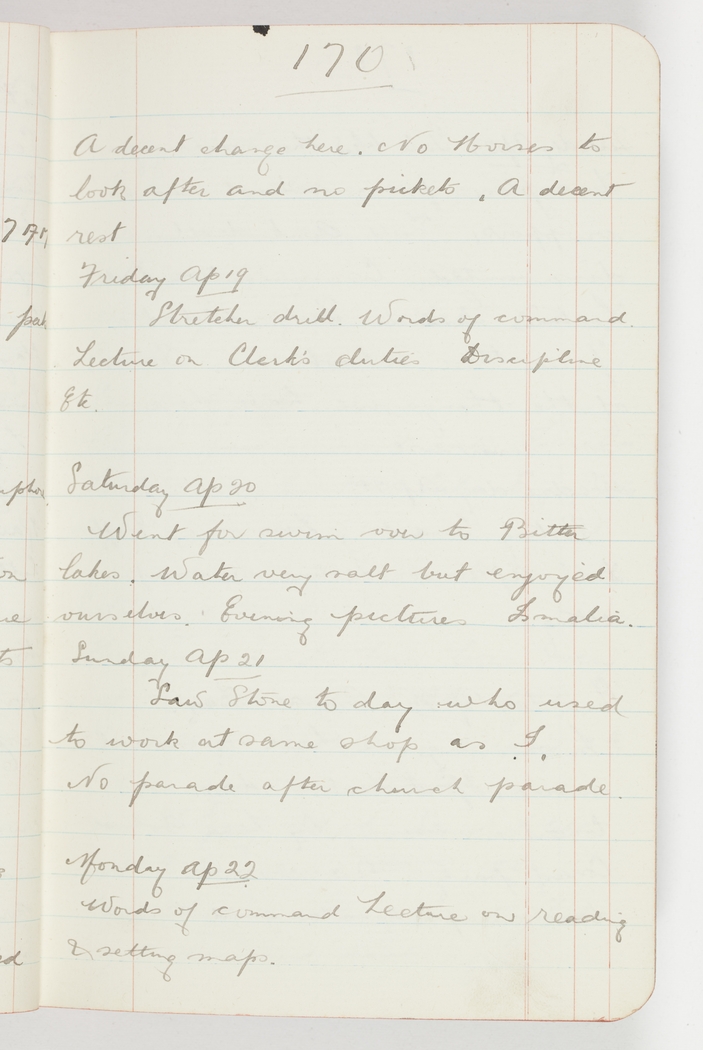 170
A decent change here. No Horses to
look after and no pickets, A decent
rest
Friday Ap 19
Stretcher drill. Words of command.
Lecture on Clerk's duties Discipline
Etc.
Saturday Ap 20
Went for swim over to Bitter
lakes. Water very salt but enjoyed
ourselves. Evening pictures Ismalia.
Sunday Ap 21
Saw Stone to day who used
to work at same shop as I.
No parade after church parade.
Monday Ap 22
Words of command Lecture on reading
& setting maps.